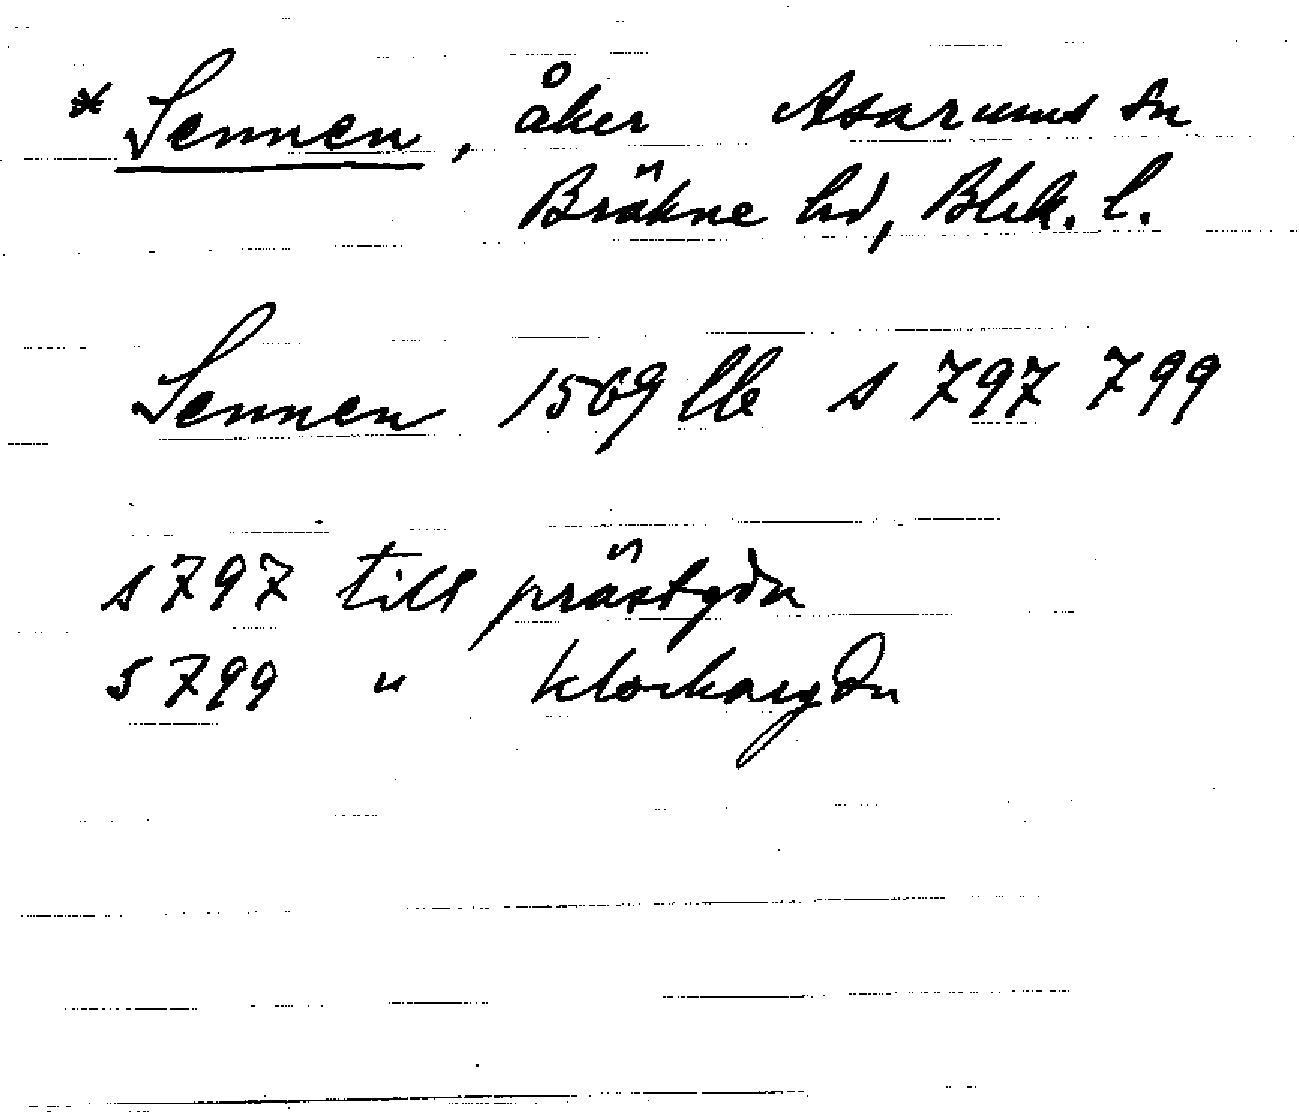 * Sennen, åker Asarums sn
Bräkne hd, Blek. l.
Sennen 1569 llb s 797 799
s 797 till prästgdn
s 799 " klockargdn